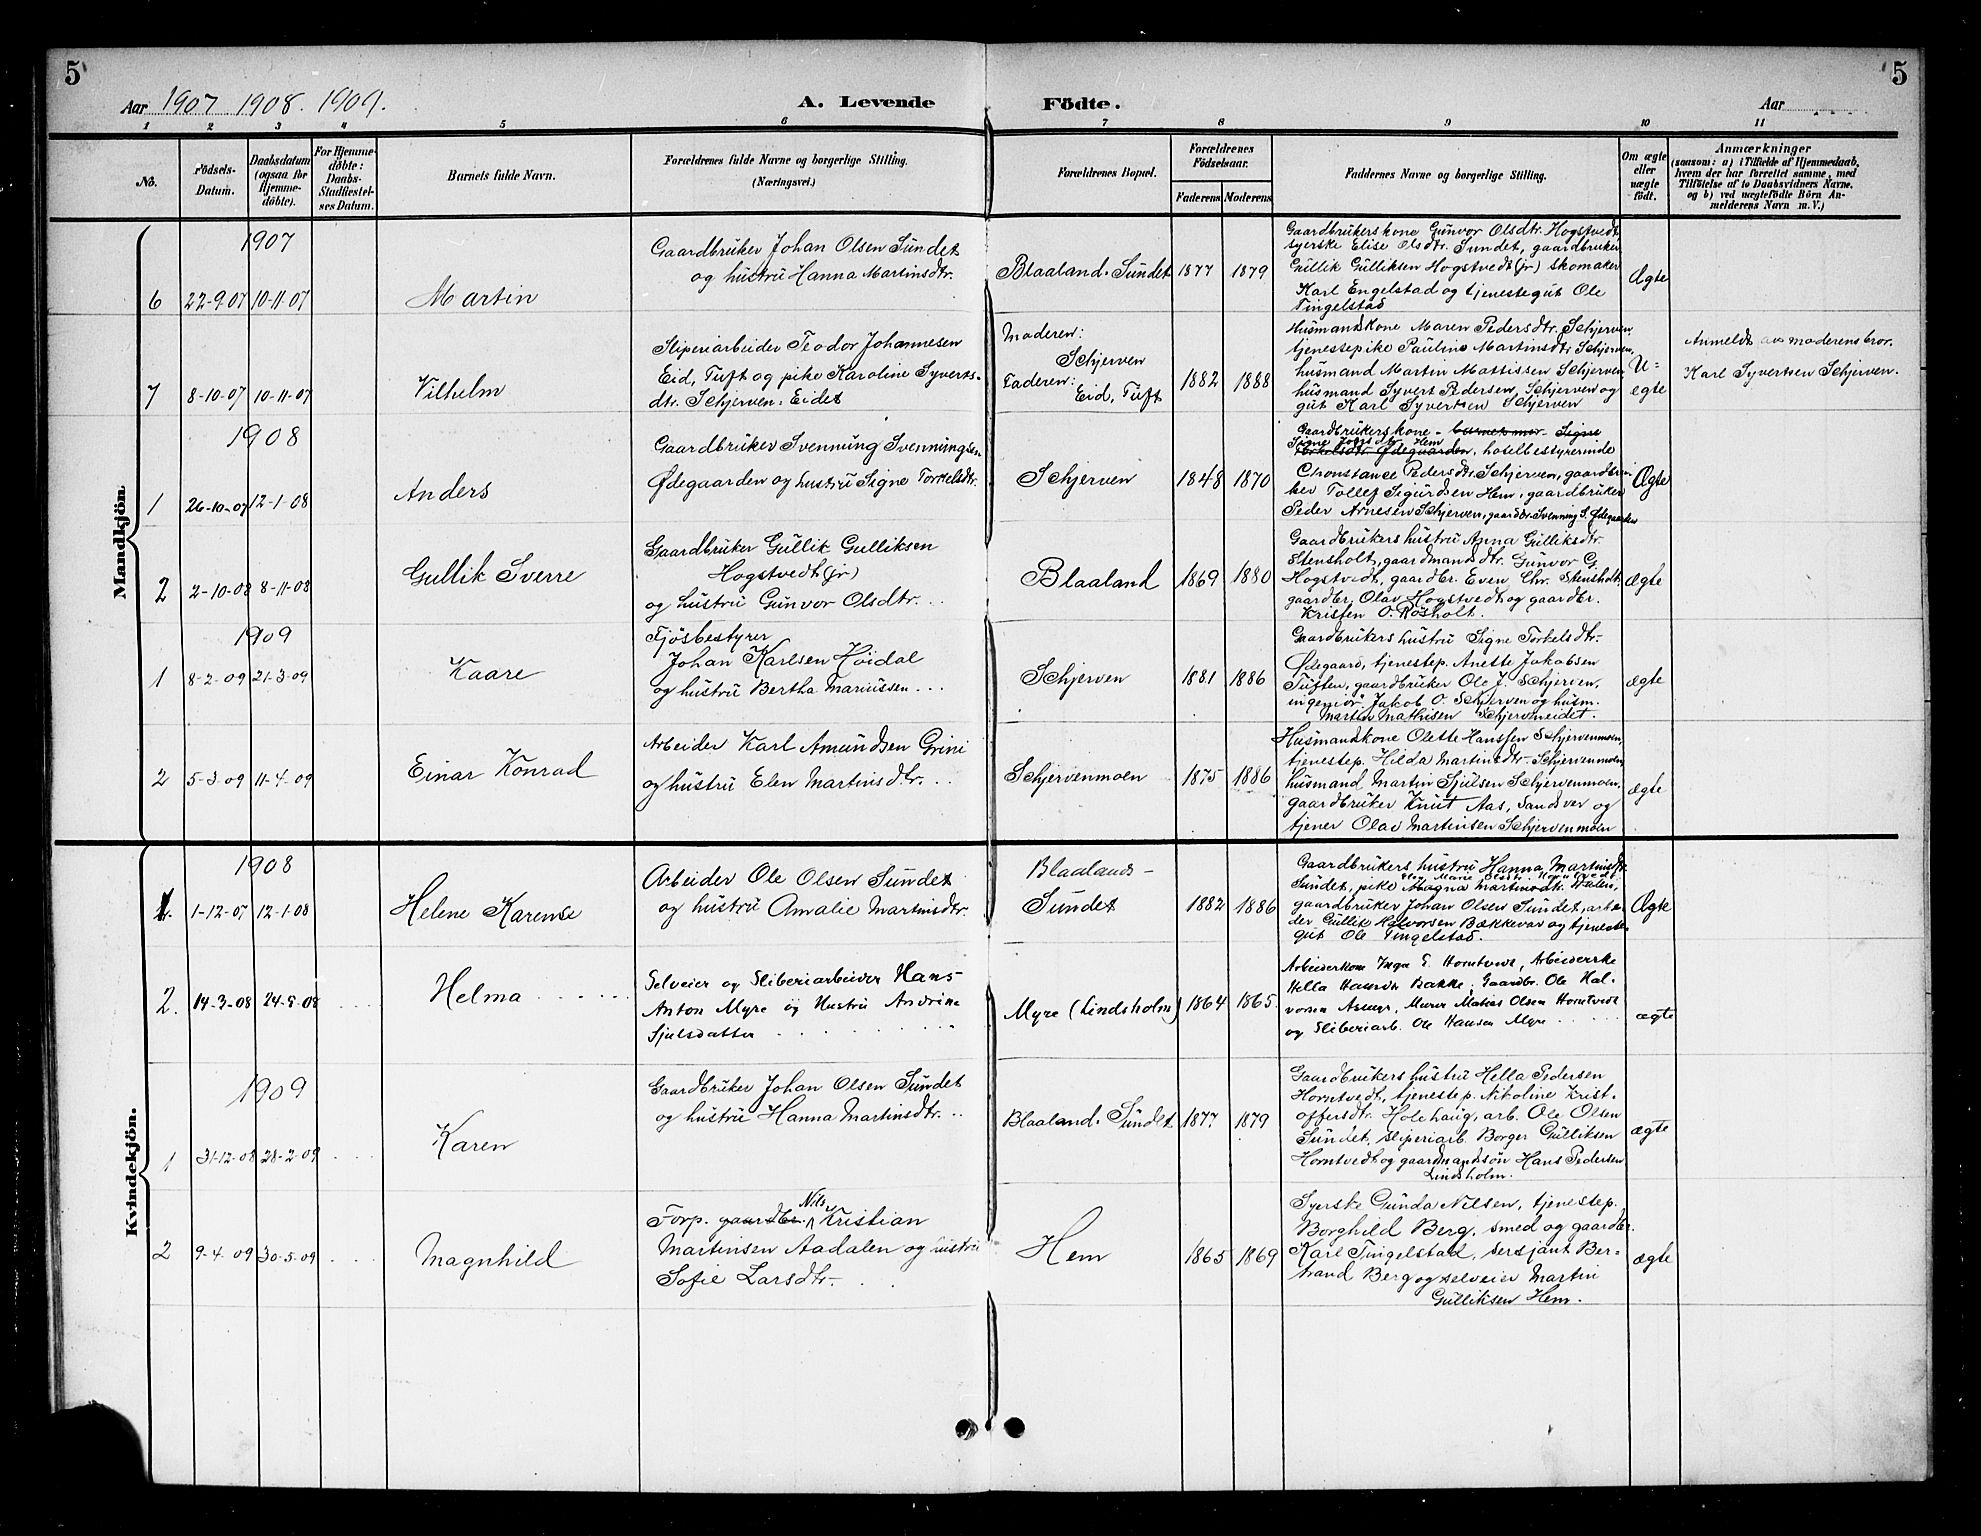 5
5
Aar 1907 1908. 1909.
A. Levende Födte.
Aar
1 2 3 4 5 6 7 8 9 10 11
No.
Födsels-Datum.
Daabsdatum (ogsaa for Hjemme-döbte).
For Hjemme-döbte: Daabs-Stadfæstel-ses Datum.
Barnets fulde Navn.
Forældrenes fulde Navne og borgerlige Stilling. (Næringsvei.)
Forældrenes Bopæl.
Forældrenes Födselsaar.
Faderens Moderens
Faddernes Navne og borgerlige Stilling.
Om ægte eller uægte födt.
Anmærkninger
(saasom: a) i Tilfælde af Hjemmedaab, hvem der har forrettet samme, med Tilföielse af to Daabsvidners Navne, og b) ved uægtefödte Börn An-melderens Navn m. V.)
Mandkjön
1907
6 22-9-07 10-11-07 Martin
Gaardbruker Johan Olsen Sundet
og hustru Hanna Martinsdtr.
Blaaland. Sundet 1877 1879
Gaardbrukerskone Gunvor Olsdtr. Hogstvedt
syerske Elise Olsdtr. Sundet, gaardbruker
Gullik Gulliksen Hogstvedt (jr) skomaker
Karl Engelstad og tjenestegut Ole
Tingelstad
Ægte
7 8-10-07 10-11-07 Vilhelm
Sliperiarbeider Teodor Johannesen
Eid, Tuft og pike Karoline Syverts-
dtr. Schjerven. Eidet
Moderen:
Schjerven
Faderen:
Eid, Tuft
1882 1888
Husmandskone Maren Pedersdtr. Schjerven,
tjenestepike Pauline Martinsdtr Schjerven,
husmand Martin Mattissen Schjerven
husmand Syvert Pedersen, Schjerven og
gut Karl Syvertsen Schjerven
U-
ægte
Anmeldt av moderens bror.
Karl Syvertsen Schjerven.
1908
1 26-10-07 12-1-08 Anders
Gaardbruker Svenning Svenningsen
Ødegaarden og hustru Signe Torkelsdtr.
Schjerven 1848 1870
Gaardbrukerskone barnets mor Signe
Signe Hem
Torkelsdtr. Ødegaarden, hotelbestyrerinde
Chonstance Pedersdtr. Schjerven, gaardbru-
ker Tollef Sigurdsen Hem, gaardbruker
Peder Arnesen Schjerven, gaardbr. Svenning S. Ødegaarden
Ægte
2 2-10-08 8-11-08 Gullik Sverre
Gaardbruker Gullik Gulliksen
Hogstvedt (jr)
og hustru Gunvor Olsdtr. ..
Blaaland 1869 1880
Gaardbrukers hustru Anna Gulliksdtr.
Stensholt, gaardmandsdtr. Gunvor G.
Hogstvedt, gaardbr. Even Chr. Stensholt
gaardbr. Olav Hogstvedt og gaardbr.
Kristen O. Røsholt.
ægte
1909
1 8-2-09 21-3-09 Kaare
Fjøsbestyrer
Johan Karlsen Høidal
og hustru Bertha Mariussen ...
Schjerven 1881 1886
Gaardbrukers hustru Signe Torkelsdtr.
Ødegaard, tjenestep. Anette Jakobsen
Tuften, gaardbruker Ole J. Schjerven,
ingeniør Jakob O. Schjerven og husm.
Martin Mathisen Schjerveneidet.
ægte
2 5-3-09 11-4-09 Einar Konrad
Arbeider Karl Amundsen Grini
og hustru Elen Martinsdtr. ..
Schjervenmoen 1875 1886
Husmandskone Olette Hanssen Schjervenmoen,
tjenestep. Hilda Martinsdtr. Schjervenmoen
husmand Martin Sjulsen Schjervenmoen,
gaardbruker Knut Aas, Sandsver og
tjener Olav Martinsen Schjervenmoen
ægte
Kvindekjön.
1908
1. 1-12-07 12-1-08 Helene Karense
Arbeider Ole Olsen Sundet
og hustru Amalie Martinsdtr.
Blaalands-
Sundet
1882 1886
Gaardbrukers hustru Hanna Martinsdtr
Sundet, pike Magna Martinsdtr.
gaardbruker Johan Olsen Sundet, arbei-
der Gullik Halvorsen Bækkevar og tjeneste-
gut Ole Tingelstad.
Ægte
2. 14-3-08 24-5-08 Helma
Selveier og Sliberiarbeider Hans
Anton Myre og Hustru Andrine
Sjulsdatter
Myre (Lindsholm) 1864 1865.
Arbeiderkone Inga G. Horntvedt, Arbeiderske
Hella Hansdtr Bakke, Gaardbr. Ole Hal-
vorsen, Murer Matias Olsen Horntvedt
og Sliberiarb. Ole Hansen Myre
ægte
1909
1 31-12-08 28-2-09 Karen
Gaardbruker Johan Olsen Sundet
og hustru Hanna Martinsdtr. ..
Blaaland. Sundet 1877 1879
Gaardbrukers hustru Hella Pedersen
Horntvedt, tjenestep. Nikoline Krist-
offersdtr. Holehaug, arb. Ole Olsen
Sundet, sliperiarb. Borger Gulliksen
Horntvedt og gaardmandssøn Hans Pedersen
Lindsholm.
ægte
2 9-4-09 30-5-09 Magnhild
Forp. gaardbr. Nils Kristian
Martinsen Aadalen og hustru
Sofie Larsdtr.
Hem 1865 1869
Syerske Gunda Nilsen, tjenestep.
Borghild Berg, smed og gaardbr.
Karl Tingelstad, sersjant Ber-
trand Berg og selveier Martin
Gulliksen Hem.
ægte